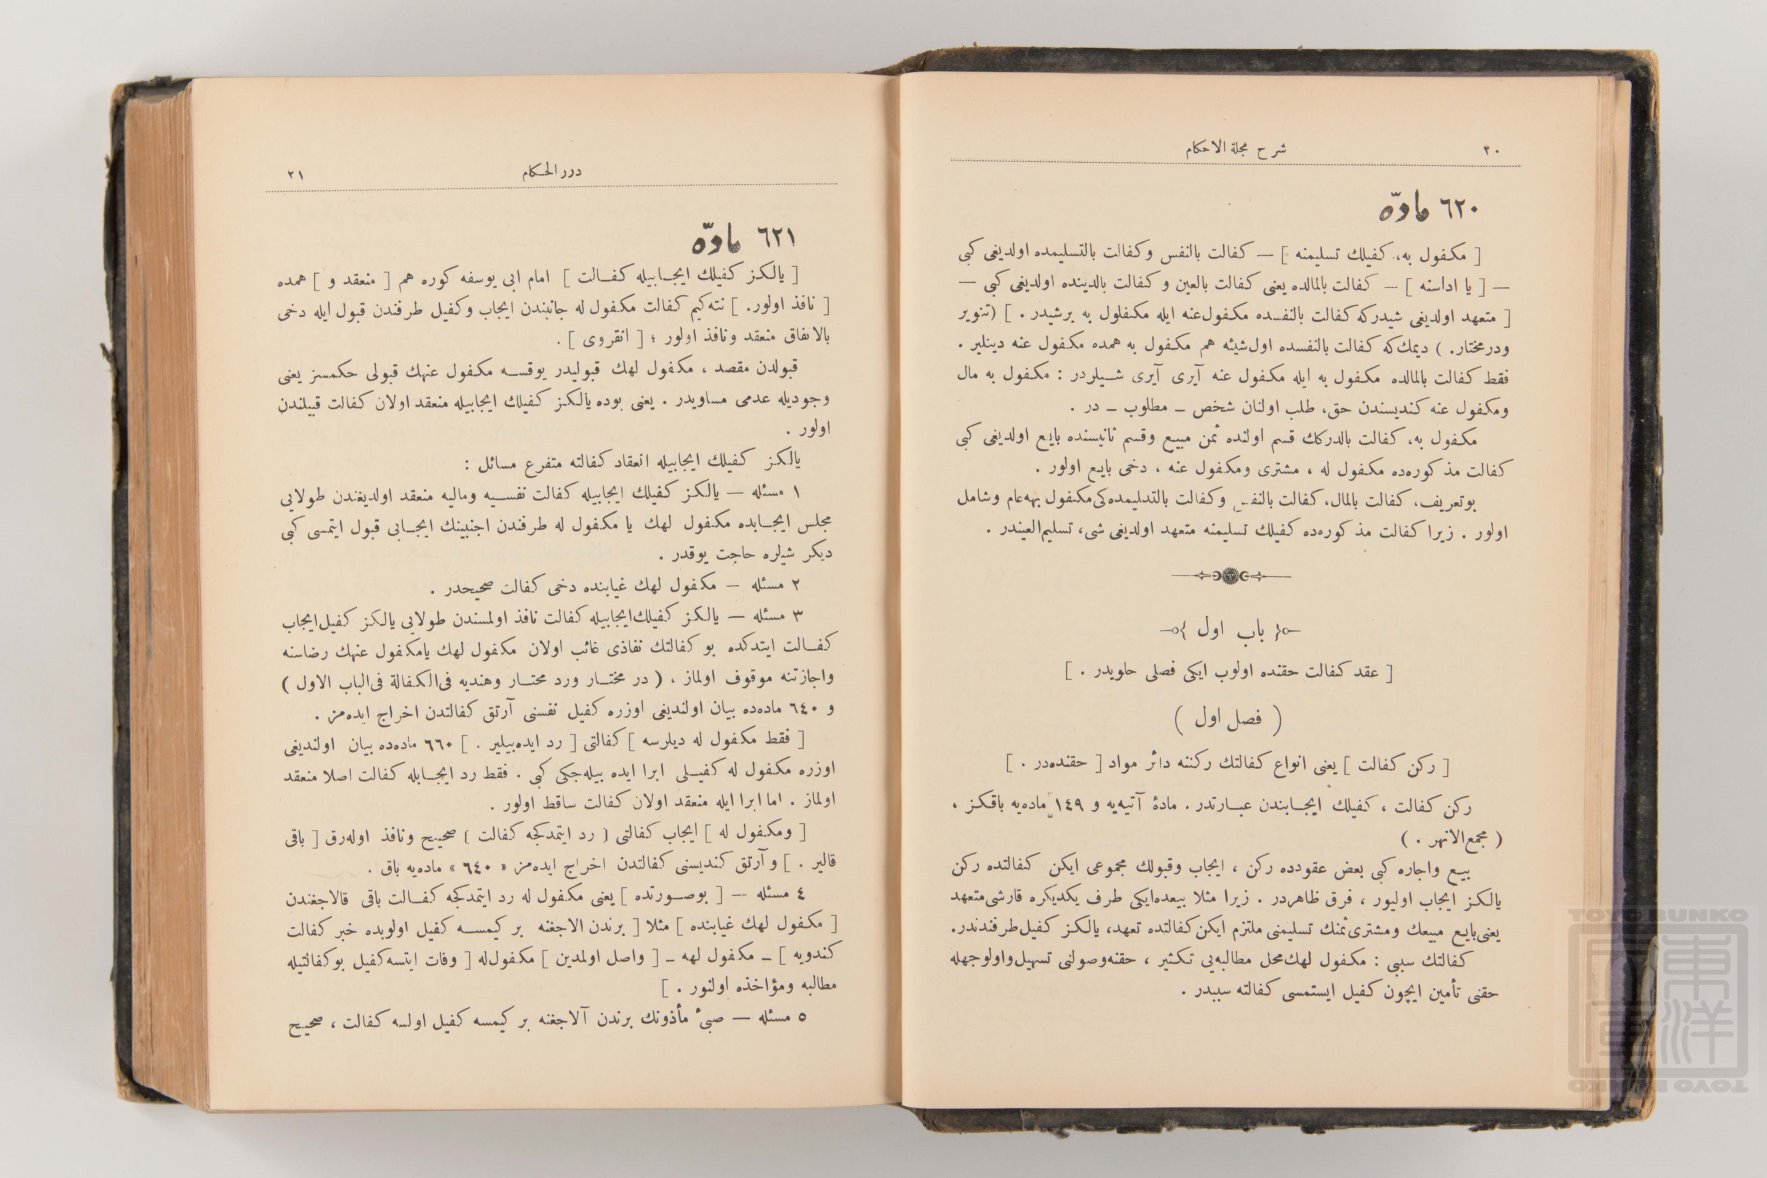 ٢٠ شرح مجلة الاحكام
٦٢٠ مادّه
[ مكفول به، كفيلك تسليمنه ] — كفالت بالنفس وكفالت بالتسليمده اولديغى كبى
— [ يا اداسنه ] — كفالت بالمالده يعنى كفالت بالعين و كفالت بالدينده اولديغى كبى —
[ متعهد اولديغى شيدركه كفالت بالنفسده مكفول‌عنه ايله مكفلول به برشيدر . ] (تنوير
ودرمختار. ) ديمك‌كه كفالت بالنفسده اول‌شيئه هم مكفول به همده مكفول عنه دينلير .
فقط كفالت بالمالده مكفول به ايله مكفول عنه آيرى آيرى شيلردر : مكفول به مال
ومكفول عنه كنديسندن حق، طلب اولنان شخص — مطلوب — در .
مكفول به، كفالت بالدركك قسم اولنده ثمن مبيع وقسم ثانيسنده بايع اولديغى كبى
كفالت مذكوره‌ده مكفول له ، مشترى ومكفول عنه ، دخى بايع اولور .
بوتعريف، كفالت بالمال، كفالت بالنفس وكفالت بالتسليمده‌كى‌مكفول بهه‌عام وشامل
اولور . زيرا كفالت مذكوره‌ده كفيلك تسليمنه متعهد اولديغى شى، تسليم‌العيندر .
باب اول
[ عقد كفالت حقنده اولوب ايكى فصلى حاويدر . ]
( فصل اول )
[ ركن كفالت ] يعنى انواع كفالتك ركننه دائر مواد [ حقنده‌در . ]
ركن كفالت ، كفيلك ايجابندن عبارتدر . مادۀ آتيه‌يه و ١٤٩ ماده‌يه باقكز ،
( مجمع‌الانهر . )
بيع واجاره كبى بعض عقودده ركن ، ايجاب وقبولك مجموعى ايكن كفالتده ركن
يالكز ايجاب اوليور ، فرق ظاهردر . زيرا مثلا بيعده‌ايكى طرف يكديكره قارشى‌متعهد
يعنى‌بايع مبيعك ومشترى‌ثمنك تسليمنى ملتزم ايكن‌كفالتده تعهد، يالكز كفيل‌طرفندندر.
كفالتك سببى : مكفول لهك‌محل مطالبه‌يى تكثير ، حقنه‌وصولنى تسهيل‌واولوجهله
حقنى تأمين ايچون كفيل ايستمسى كفالته سببدر .
درر الحكام ٢١
٦٢١ مادّه
[ يالكز كفيلك ايجابيله كفالت ] امام ابى يوسفه كوره هم [ منعقد و ] همده
[ نافذ اولور. ] نته‌كيم كفالت مكفول له جانبندن ايجاب وكفيل طرفندن قبول ايله دخى
بالاتفاق منعقد ونافذ اولور ؛ [ انقروى ] .
قبولدن مقصد ، مكفول لهك قبوليدر يوقسه مكفول عنهك قبولى حكمسز يعنى
وجوديله عدمى مساويدر . يعنى بوده يالكز كفيلك ايجابيله منعقد اولان كفالت قبيلندن
اولور .
يالكز كفيلك ايجابيله انعقاد كفالته متفرع مسائل :
١ مسئله — يالكز كفيلك ايجابيله كفالت نفسيه وماليه منعقد اولديغندن طولايى
مجلس ايجابده مكفول لهك يا مكفول له طرفندن اجنبينك ايجابى قبول ايتمسى كبى
ديكر شيلره حاجت يوقدر .
٢ مسئله — مكفول لهك غيابنده دخى كفالت صحيحدر .
٣ مسئله — يالكز كفيلك‌ايجابيله كفالت نافذ اولمسندن طولايى يالكز كفيل‌ايجاب
كفالت ايتدكده بو كفالتك نفاذى غائب اولان مكفول لهك يامكفول عنهك رضاسنه
واجازتنه موقوف اولماز ، ( در مختار ورد محتار وهنديه فى‌الكفالة فى‌الباب الاول )
و ٦٤٠ ماده‌ده بيان اولنديغى اوزره كفيل نفسنى آرتق كفالتدن اخراج ايده‌مز .
[ فقط مكفول له ديلرسه ] كفالتى [ رد ايده‌بيلير . ] ٦٦٠ ماده‌ده بيان اولنديغى
اوزره مكفول له كفيلى ابرا ايده بيله‌جكى كبى . فقط رد ايجابله كفالت اصلا منعقد
اولماز . اما ابرا ايله منعقد اولان كفالت ساقط اولور .
[ ومكفول له ] ايجاب كفالتى [ رد ايتمدكجه كفالت ] صحيح ونافذ اوله‌رق [ باقى
قالير . ] و آرتق كنديسنى كفالتدن اخراج ايده‌مز « ٦٤٠ » ماده‌يه باق .
٤ مسئله — [ بوصورتده ] يعنى مكفول له رد ايتمدكجه كفالت باقى قالاجغندن
[ مكفول لهك غيابنده ] مثلا [ برندن الاجغنه بر كيمسه كفيل اولوبده خبر كفالت
كندويه ] — مكفول لهه — [ واصل اولمدين ] مكفول‌له [ وفات ايتسه‌كفيل بوكفالتيله
مطالبه ومؤاخذه اولنور . ]
٥ مسئله — صبىء مأذونك برندن آلاجغنه بر كيمسه كفيل اولسه كفالت ، صحيح
TOYO BUNKO
東洋文庫
TOYO BUNKO